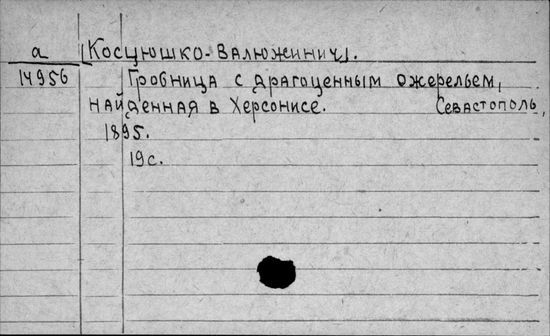 а [Косцюшко-Валюжинич].
14956 Гробница с драгоценным ожерельем,
найденная в Херсонисе. Севастополь,
1895.
19с.